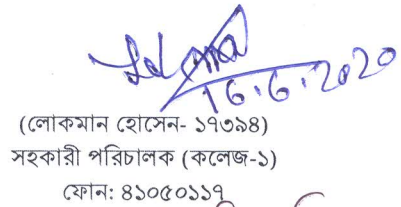 16.6.2020
(লোকমান হোসেন- ১৭৩৯৪)
সহকারী পরিচালক (কলেজ-১)
ফোন: ৪১০৫০১১৭